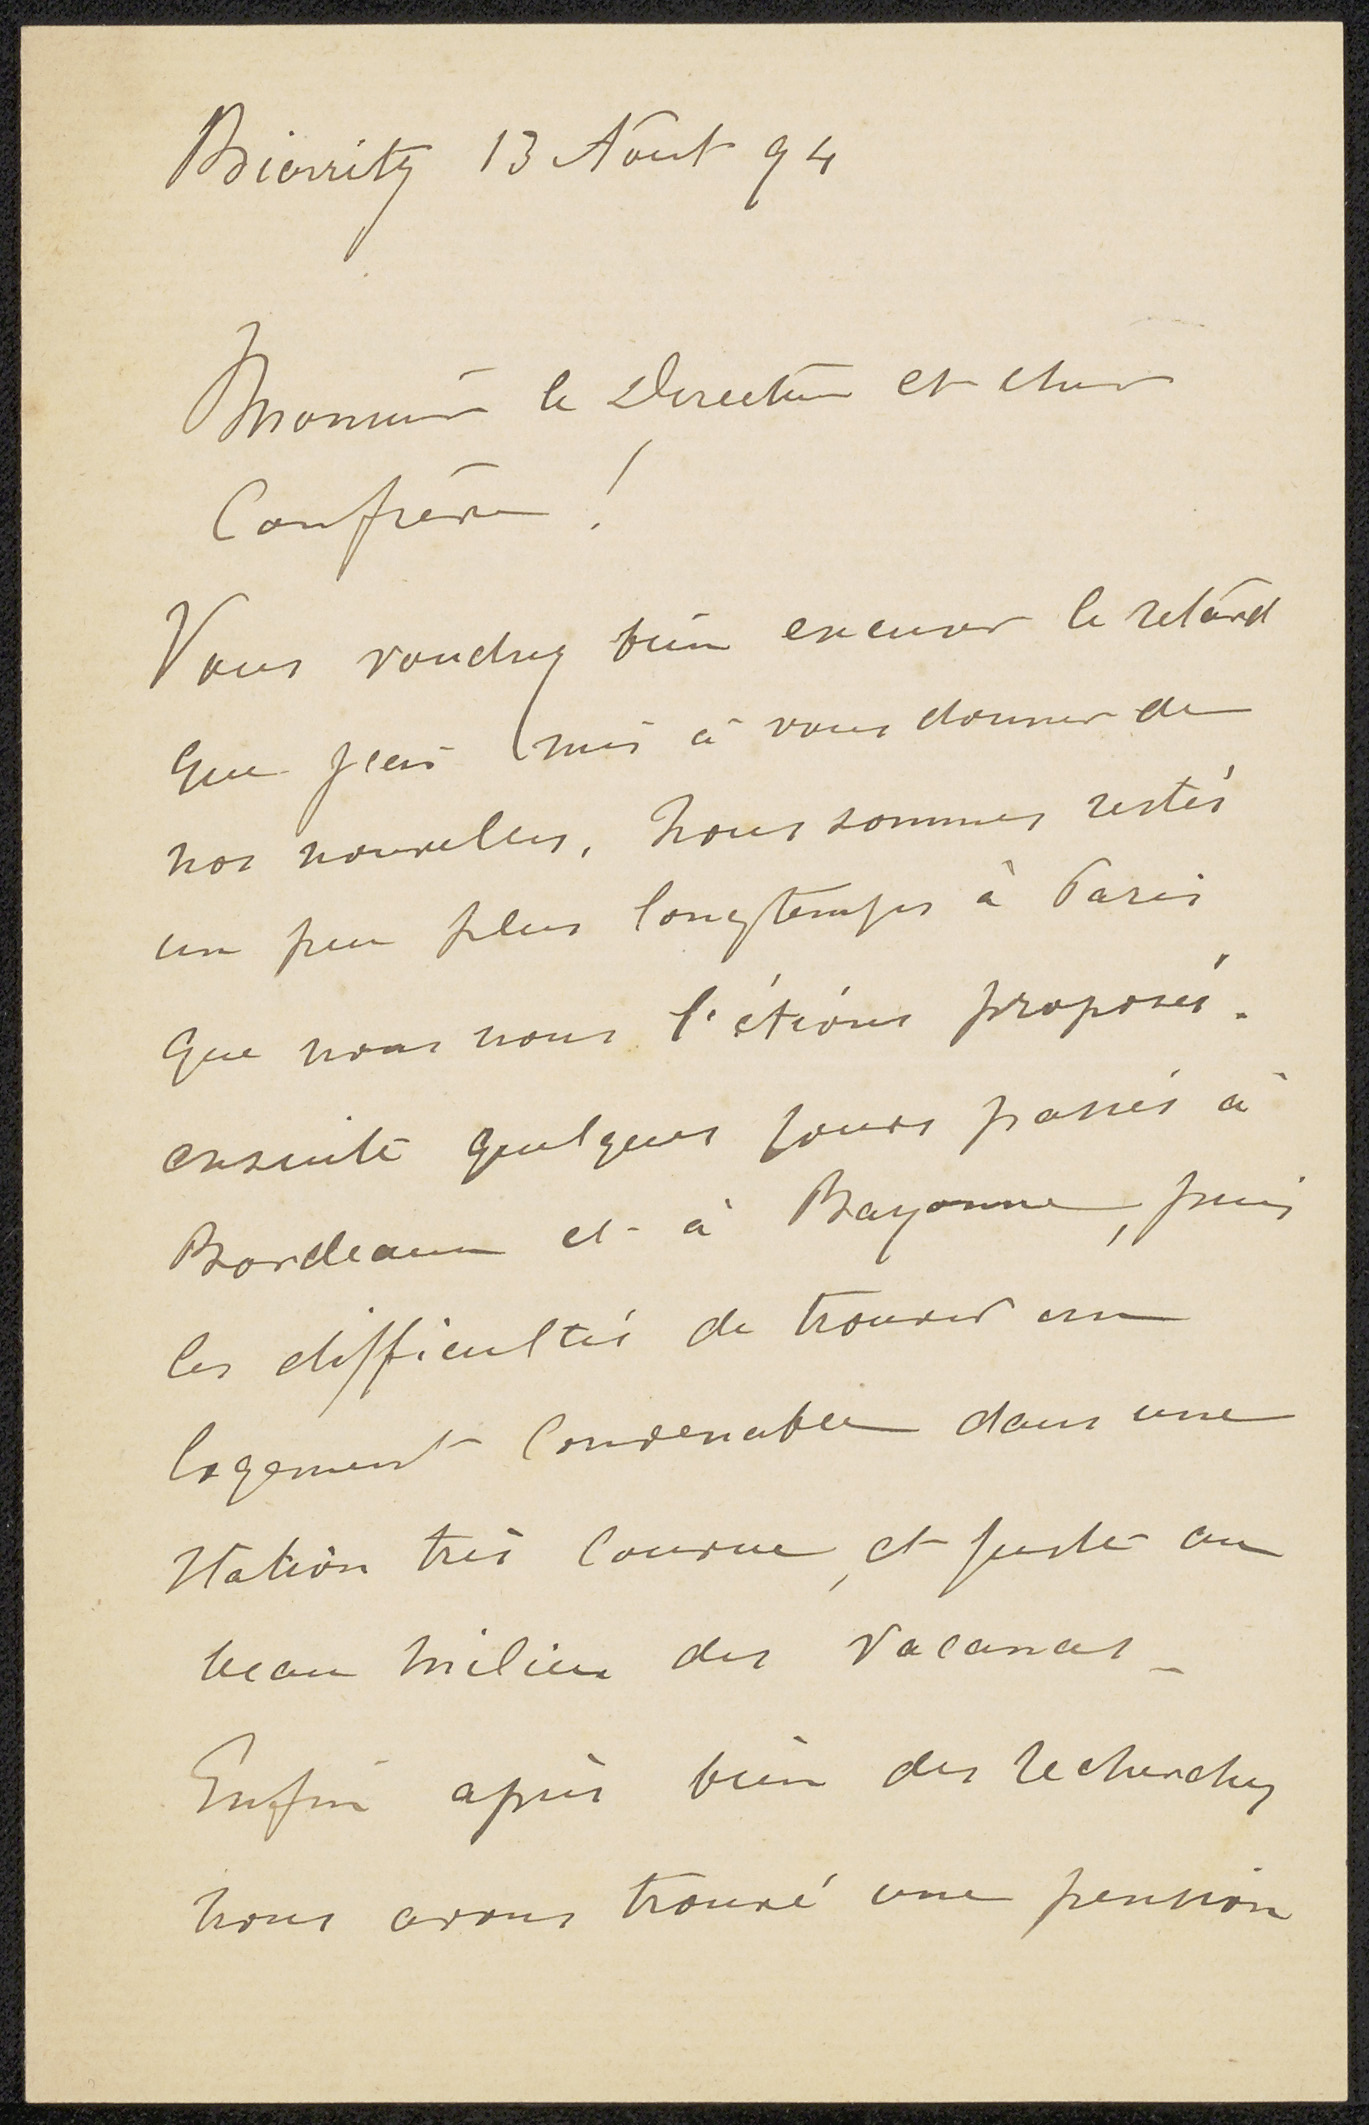 Biarritz 13 Aout 94
Monsieur le Directeur et cher
Confrère !
Vous voudrez bien excuser le retard
que j'ai mis à vous donner de
nos nouvelles. Nous sommes restés
un peu plus longtemps à Paris
que nous nous l'étions proposés.
ensuite quelques jours passés à
Bordeaux et à Bayonne, puis
les difficultés de trouver un
logement convenable dans une
station très courue, et juste au
beau milieu des vacances –
Enfin après bien des recherches
nous avons trouvé une pension